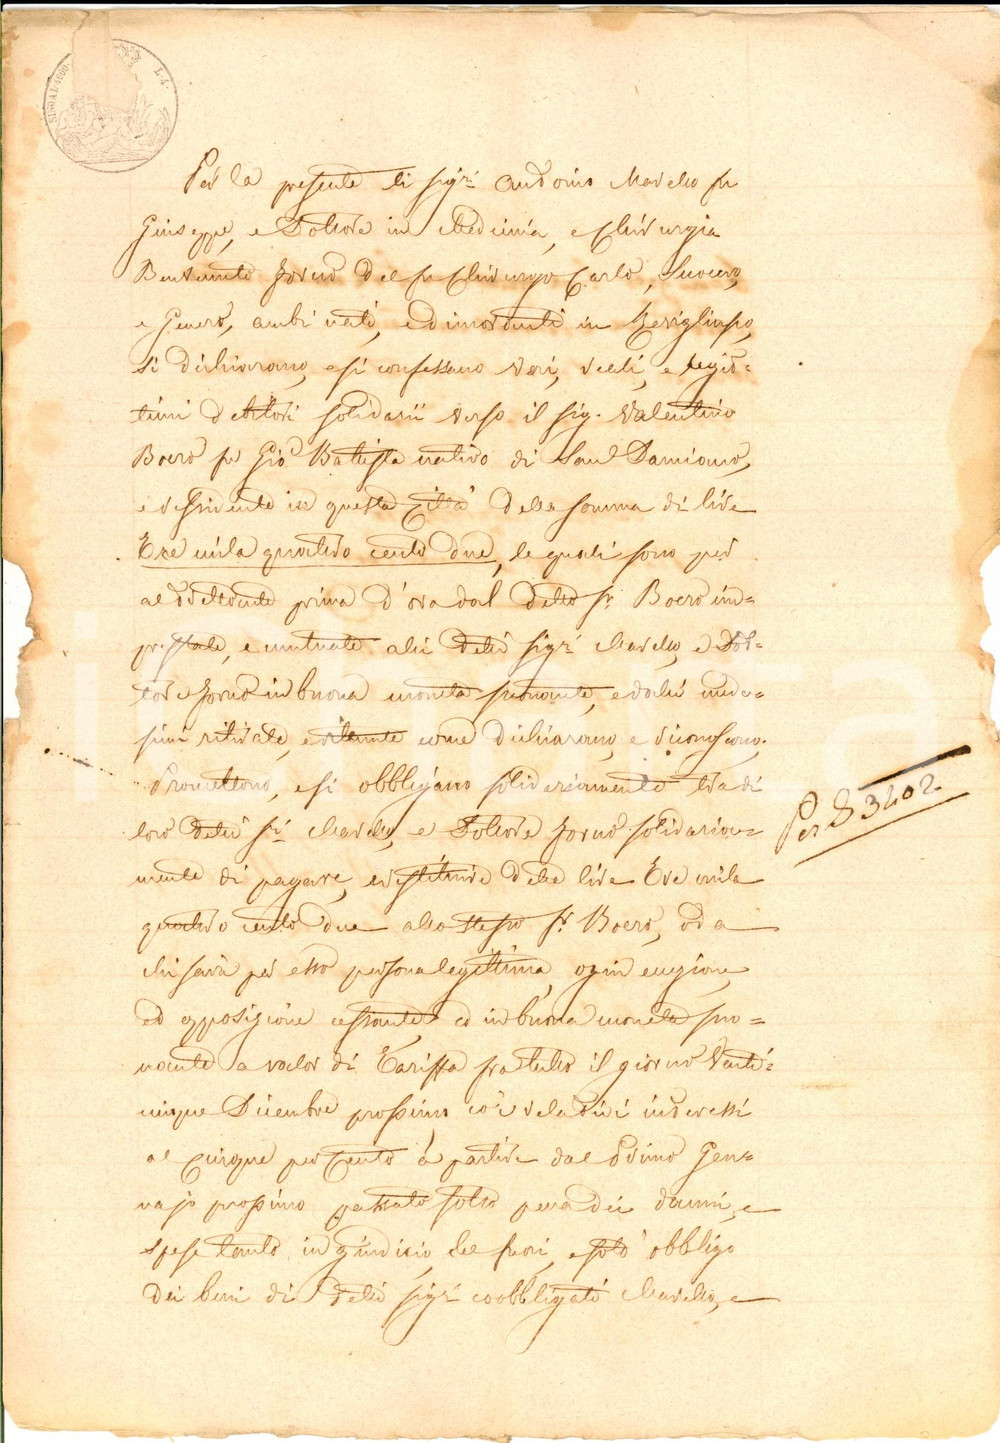 L. 4.
Per la presente li Sig.ri Antonio Marello fu
Giuseppe, e Dottore in Medicina, e Chirurgia
Benvenuto Forno del fu Chirurgo Carlo, Suocero,
e Genero, ambi nati, ed imoranti in Revigliasco,
si dichiarano, e si confessano veri, reali, e legit=
timi debitori solidarii verso il sig. Valentino
Boero fu Gio Battista nativo di San Damiano,
e residente in questa Città della somma di lire
Tre mila quattro cento due, le quali sono per
al prima d'ora dal detto Sr. Boero im=
prestate, e mutuate alli detti Sigri Marello, e Dot=
tore Forno in buona moneta suonante, e dalli mede=
simi ritirate, e ritenute come dichiarano, e riconoscono.
Promettono, e si obbligano solidariamente tra di
loro detti Sri Marello, e Dottore Forno solidaria=
mente di pagare, e restituire dette lire Tre mila
quattro cento due allo stesso Sr. Boero, od a
chi sarà per esso persona legittima, ogni eccezione,
ed opposizione cessante ed in buona moneta suo=
nante a valor di Tariffa fra tutto il giorno Venti=
cinque Dicembre prossimo coi relativi interessi
al Cinque per Cento a partire dal primo Gen=
najo prossimo passato sotto pena dei danni, e
spese tanto in giudicio, che fuori, e sotto obbligo
dei beni di detti Sigri coobbligati Marello, e
Per £ 3402